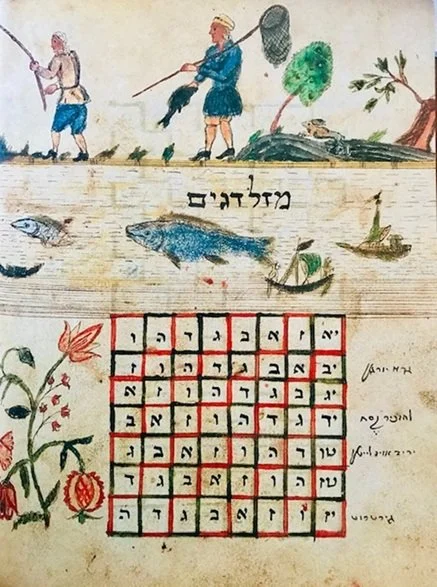 מזל דגים
יא ז א ב ג ד ה ו
יב א ב ג ד ה ו ז
יג ב ג ד ה ו ז א
יד ג ד ה ו ז א ב
להזכיר
טו ד ה ו ז א ב ג
יריד
טז ה ו ז א ב ג ד
יז ו ז א ב ג ד ה
גירטרוט